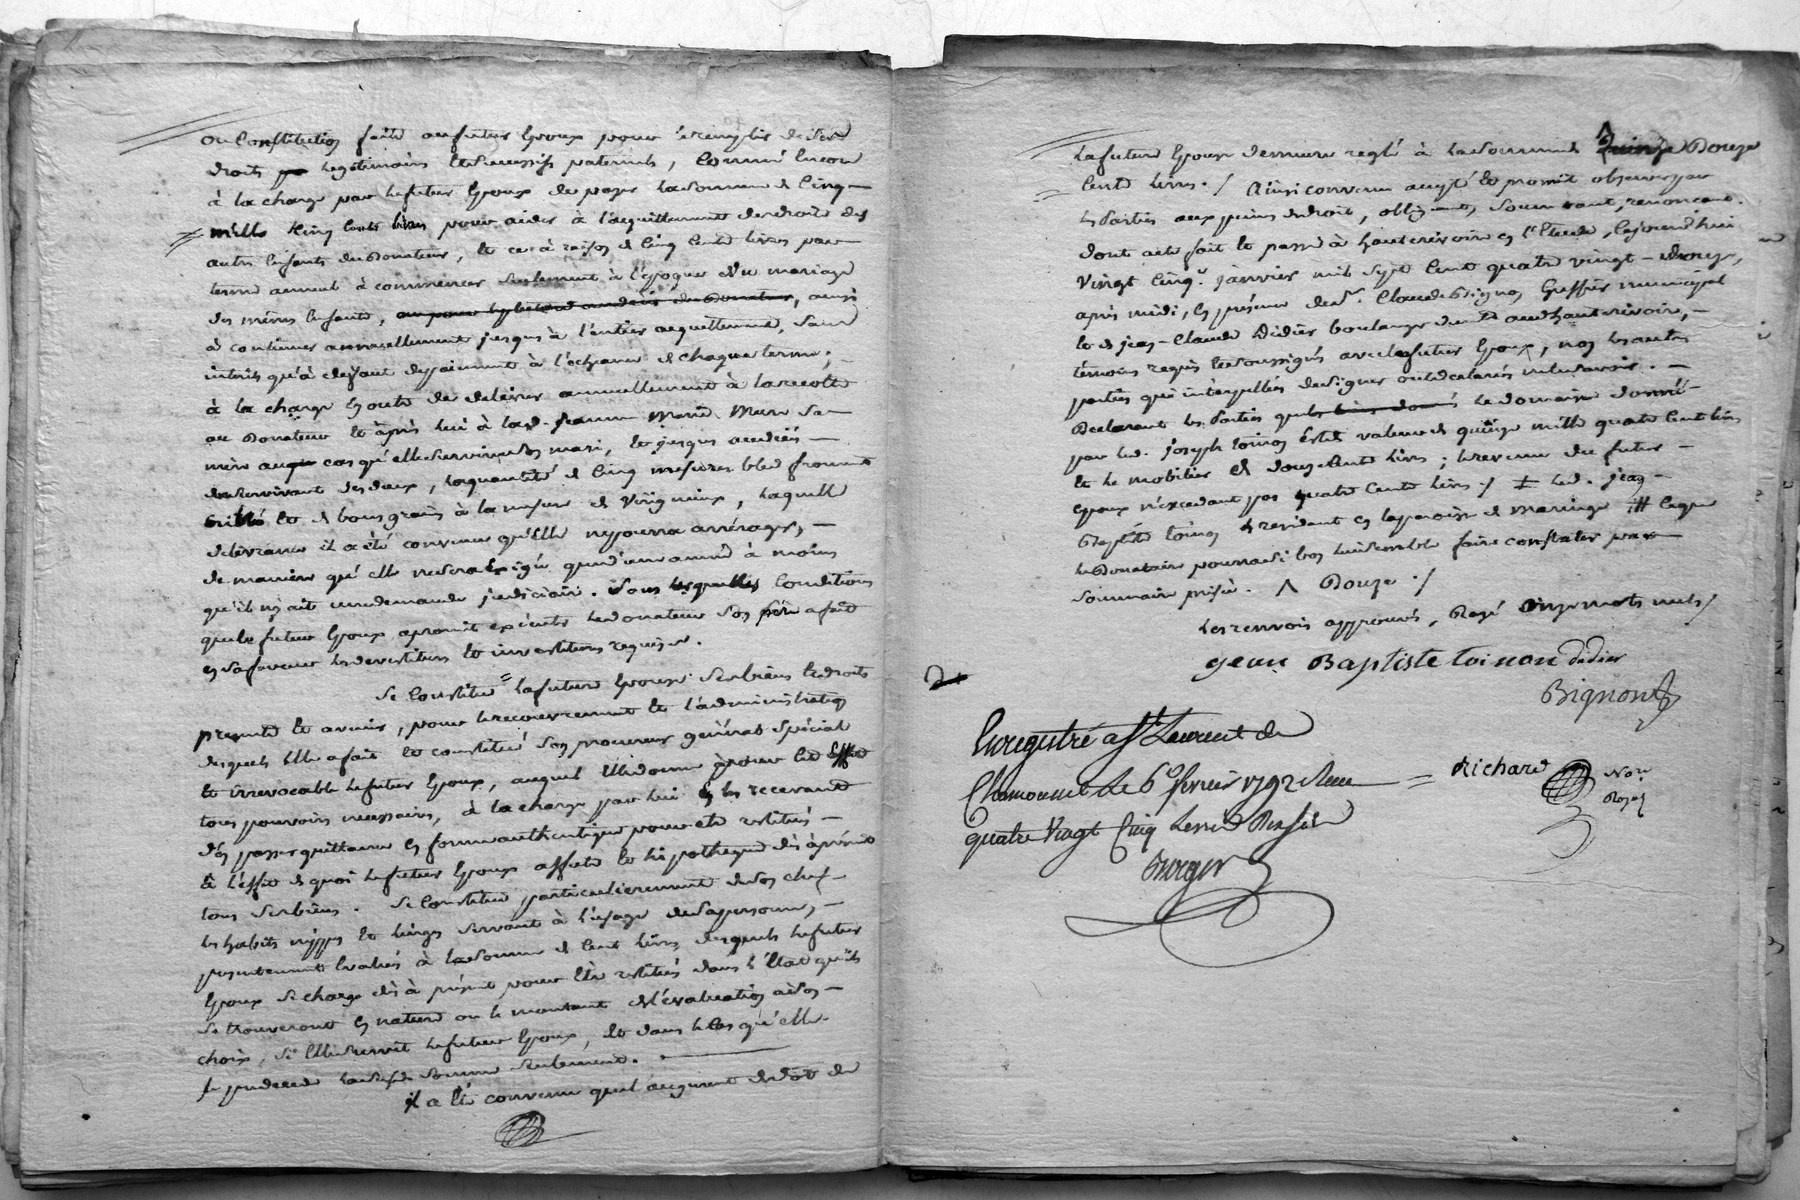 ou Constitution faite au futur Epoux pour le remplir de ses
droits legitimaires et successifs paternels, comme encore
à la charge par le futur Epoux de payer la somme de Cinq
mille Cinq Cents livres pour aider à l'acquittement des droits des
autres Enfants du Donateur, et ce à raison de Cinq Cents livres par
terme annuel à commencer seulement à l'époque du mariage
des mêmes Enfants, ainsi
à continuer annuellement jusqu'à l'entier acquittement, sans
interets qu'à deffaut de paiement à l'échéance de chaque terme;
à la charge En outre de delivrer annuellement à la recolte
au Donateur et après lui à lad. Jeanne Marie sa
mère au cas qu'elle survive à son mari, et jusqu'au décès
du survivant des deux, la quantité de Cinq mesures bled froment
criblé et de bons grains à la mesure de Virignieux, laquelle
delivrance il a été convenu qu'elle ne pourra arrérager,
de maniere qu'elle ne sera Exigée quand d'une année à moins
qu'il n'y ait une demande judiciaire. Sous lesquelles Conditions
que le futur Epoux a promit exécuter le donateur son père a fait
en sa faveur les devestitures et investitures requises.
Se Constitue la future Epouse ses biens et droits
presents et avenir, pour le recouvrement et l'administration
desquels Elle a fait et constitué son procureur général spécial
et irrévocable le futur Epoux, auquel Elle donne pour cet Effet
tous pouvoirs necessaires, à la charge par lui En les recevant
d'en passer quittance en forme authentique pour etre restitués
à l'effet de quoi le futur Epoux affecte et hipotheque dès à présent
tous ses biens. Se Constitue particulierement de son chef
les habits nippes et linges servant à l'usage de sa personne,
presentement Evalués à la somme de Cent livres desquels le futur
Epoux se charge dès à présent pour Etre restitués dans l'Etat qu'ils
se trouveront en nature ou le montant de l'évaluation à son
choix, si Elle survit le futur Epoux, et dans le Cas qu'elle
le predecede lad. somme seulement.
il a Eté convenu que l'augment de dot de
la future Epouse demeure reglé à la somme de Quinze Douze
Cents livres. / Ainsi convenu accepté et promit observer par
les Parties aux peines de droit, obligeant, soumettant, renoncant.
dont acte fait et passé à hauterivoire en l'Etude, Cejourd'hui
Vingt Cinq. janvier mil sept Cent quatre vingt-douze,
après midi, En présence de Sr. Claude Bignon Greffier municipal
et de jean-Claude Didier boulanger demt. aud. hauterivoire,
témoins requis et soussignés avec le futur Epoux, non les autres
parties qui interpellées de signer ont déclarés ne le savoir.
Declarant les Parties que le domaine donné
par led. joseph toinon Est de valeur de quinze mille quatre Cent livres
et le mobilier de douze Cents livres; le revenu du futur
epoux n'excedant pas quatre Cents livres./ ‡ led. jean
Baptiste toinon Et résident en la paroisse de maringe # lequel
le Donataire pourra si bon lui semble faire constater par
sommaire prisée. Λ Douze ./
Les renvois approuvés, Rayé onze mots nuls/
jean Baptiste toinon didier
Bignon
Enregistré a St Laurent de
Chamousset le 6e fevrier 1792 Reçu
quatre Vingt Cinq
Richard Nore
Royal